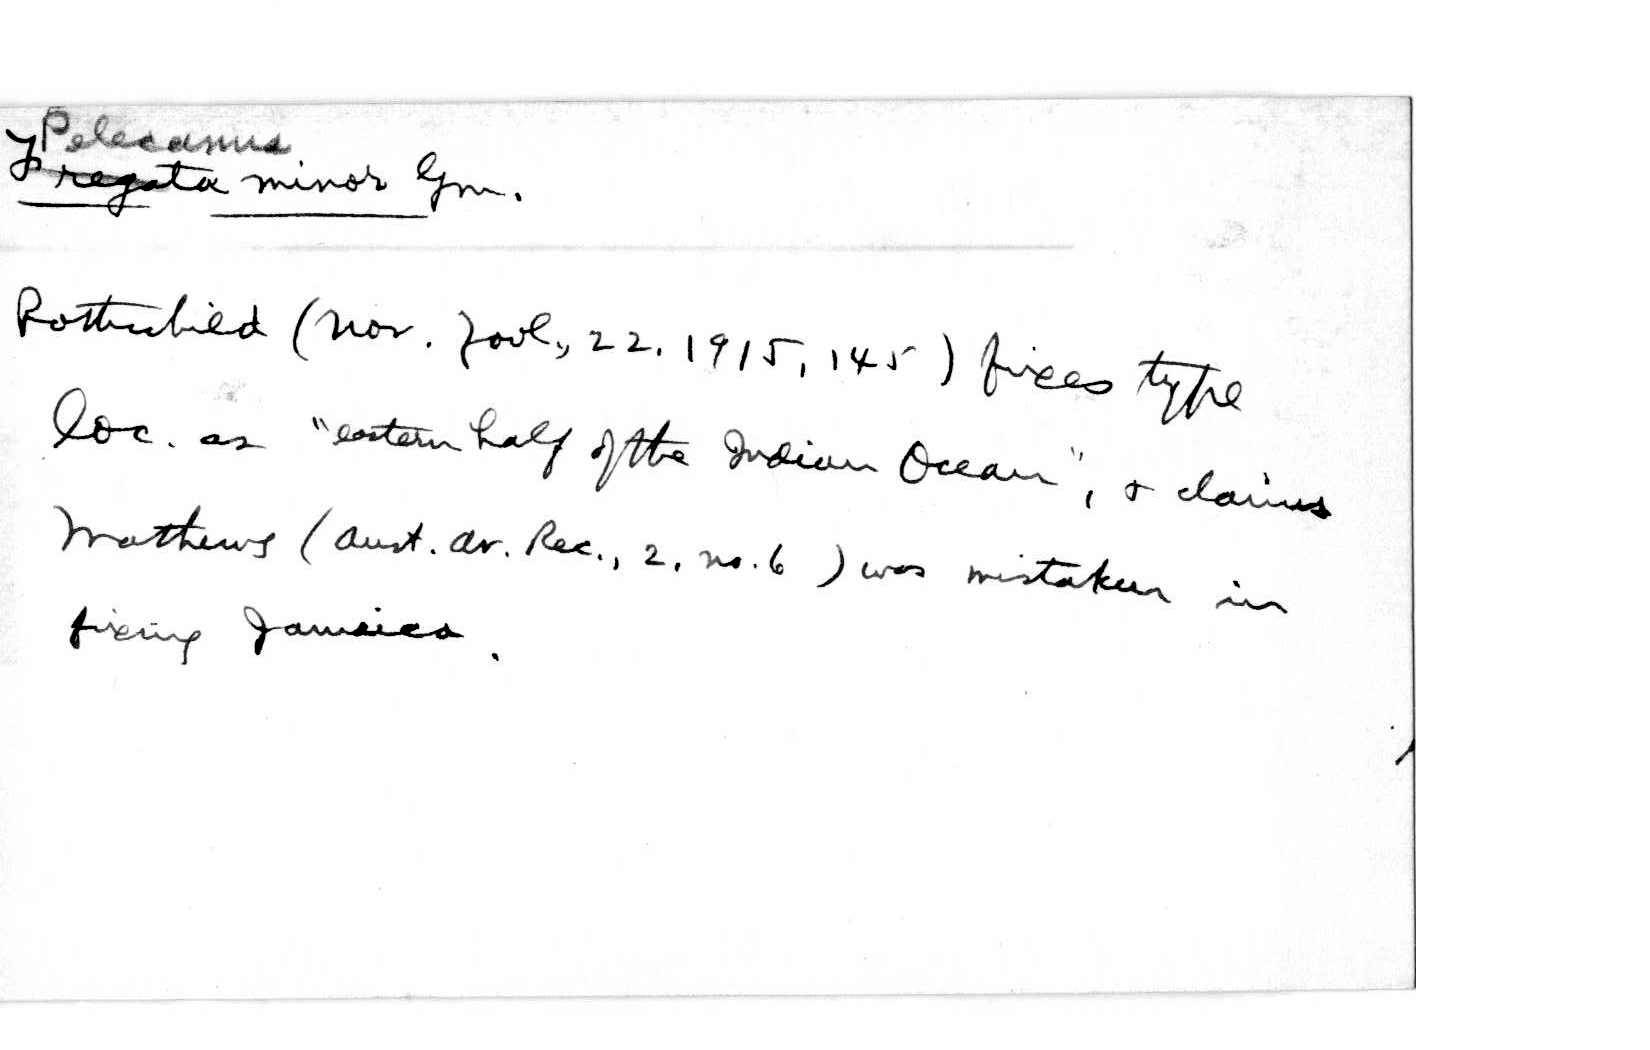 Pelecanus
Fregata minor Gm.
Rothschild (Nov. Zool., 22. 1915, 145) fixes type
loc. as "eastern half of the Indian Ocean", & claims
Mathews (Aust. Av. Rec., 2, no. 6) was mistaken in
fixing Jamaica.